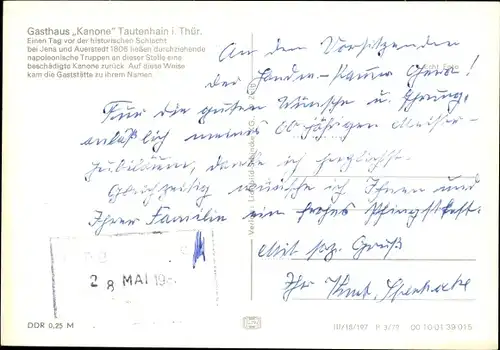 Gasthaus „Kanone“ Tautenhain i. Thür.
Einen Tag vor der historischen Schlacht
bei Jena und Auerstedt 1806 ließen durchziehende
napoleonische Truppen an dieser Stelle eine
beschädigte Kanone zurück. Auf diese Weise
kam die Gaststätte zu ihrem Namen.
An den Vorsitzenden
der Gera!
Für die guten Wünsche u. Ehrung,
anläßlich meines 60 jährigen Meister-
Jubiläum, danke ich herzlichst.
Gleichzeitig wünsche ich Ihnen und
Ihrer Familie ein frohes Pfingstfest.
Mit soz. Gruß
Ihr
28 MAI 19
DDR 0,25 M
III/18/197 P 3/79 00 10 01 39 015